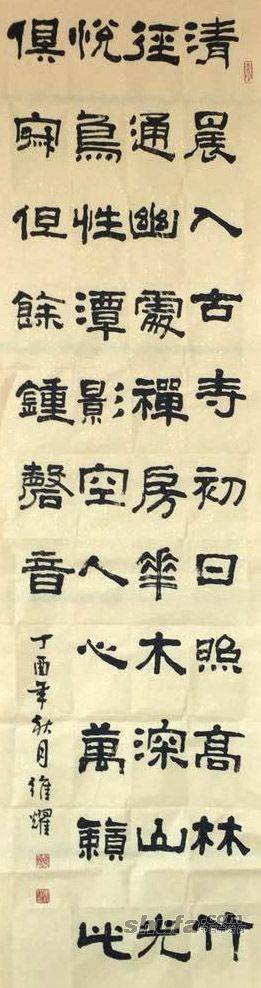 清晨入古寺初日照高林竹
徑通幽處禪房華木深山光
悅鳥性潭影空人心萬籟此
俱寂但餘鍾磬音
丁酉年秋月維耀